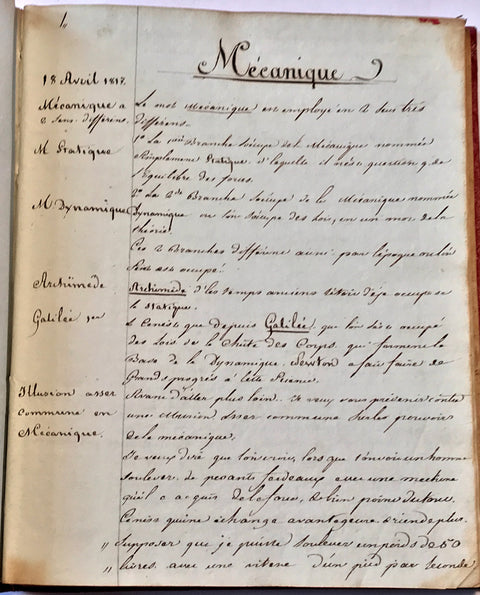 1
Mécanique
18 Avril 1817.
Mécanique a
2 sens différens.
Le mot mécanique est employé en 2 sens très
différens.
M Statique
1° La 1ère Branche s'occupe de la Mécanique nommée
Simplement Statique, d'laquelle il n'est question q. de
l'Equilibre des forces.
2° La 2de Branche s'occupe de la Mécanique nommée
M Dynamique
Dynamique ou l'on s'occupe des lois, en un mot de la
théorie.
Ces 2 Branches diffèrent aussi par l'époque où l'on
s'en est occupé.
Archimède
Archimède d'les temps anciens s'était déjà occupé de
la statique.
Galilée 1er
Ce n'est que depuis Galilée, que l'on s'est occupé
des Lois de la Chute des Corps, qui forment la
Base de la Dynamique, Newton a fait faire de
Grands progrès à cette Science.
Illusion assez
commune en
Mécanique.
Avant d'aller plus loin. Je veux vous prévenir contre
une Illusion assez commune sur les pouvoirs
de la mécanique.
Je veux dire que l'on croit, lors que l'on voit un homme
soulever de pesants fardeaux avec une machine
qu'il a acquis de la force, & bien point du tout
Ce n'est qu'un échange avantageux & rien de plus.
" Supposez que je puisse soulever un poids de 50
" livres avec une vitesse d'un pied par seconde